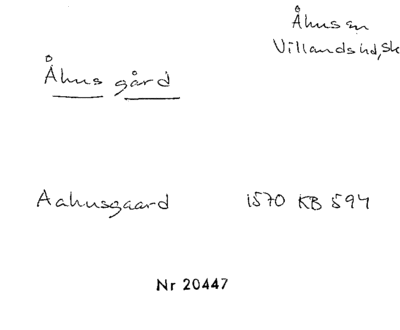 Åhus sn
Villands hd, Sk
Åhus gård
Aahusgaard 1570 KB 594
Nr 20447